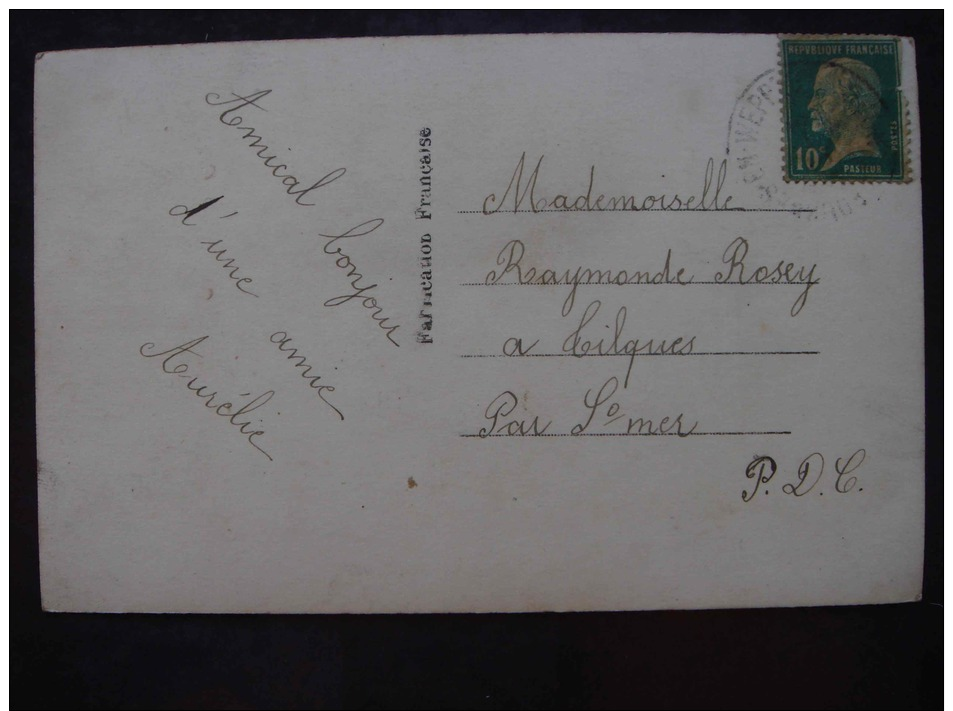 Amical bonjour
d'une amie
Aurélie
Fabrication Française
Mademoiselle
Raymonde Rosey
a Tilques
Par S^o mer
P. D. C.
REPUBLIQUE FRANÇAISE
10^c
POSTES
PASTEUR